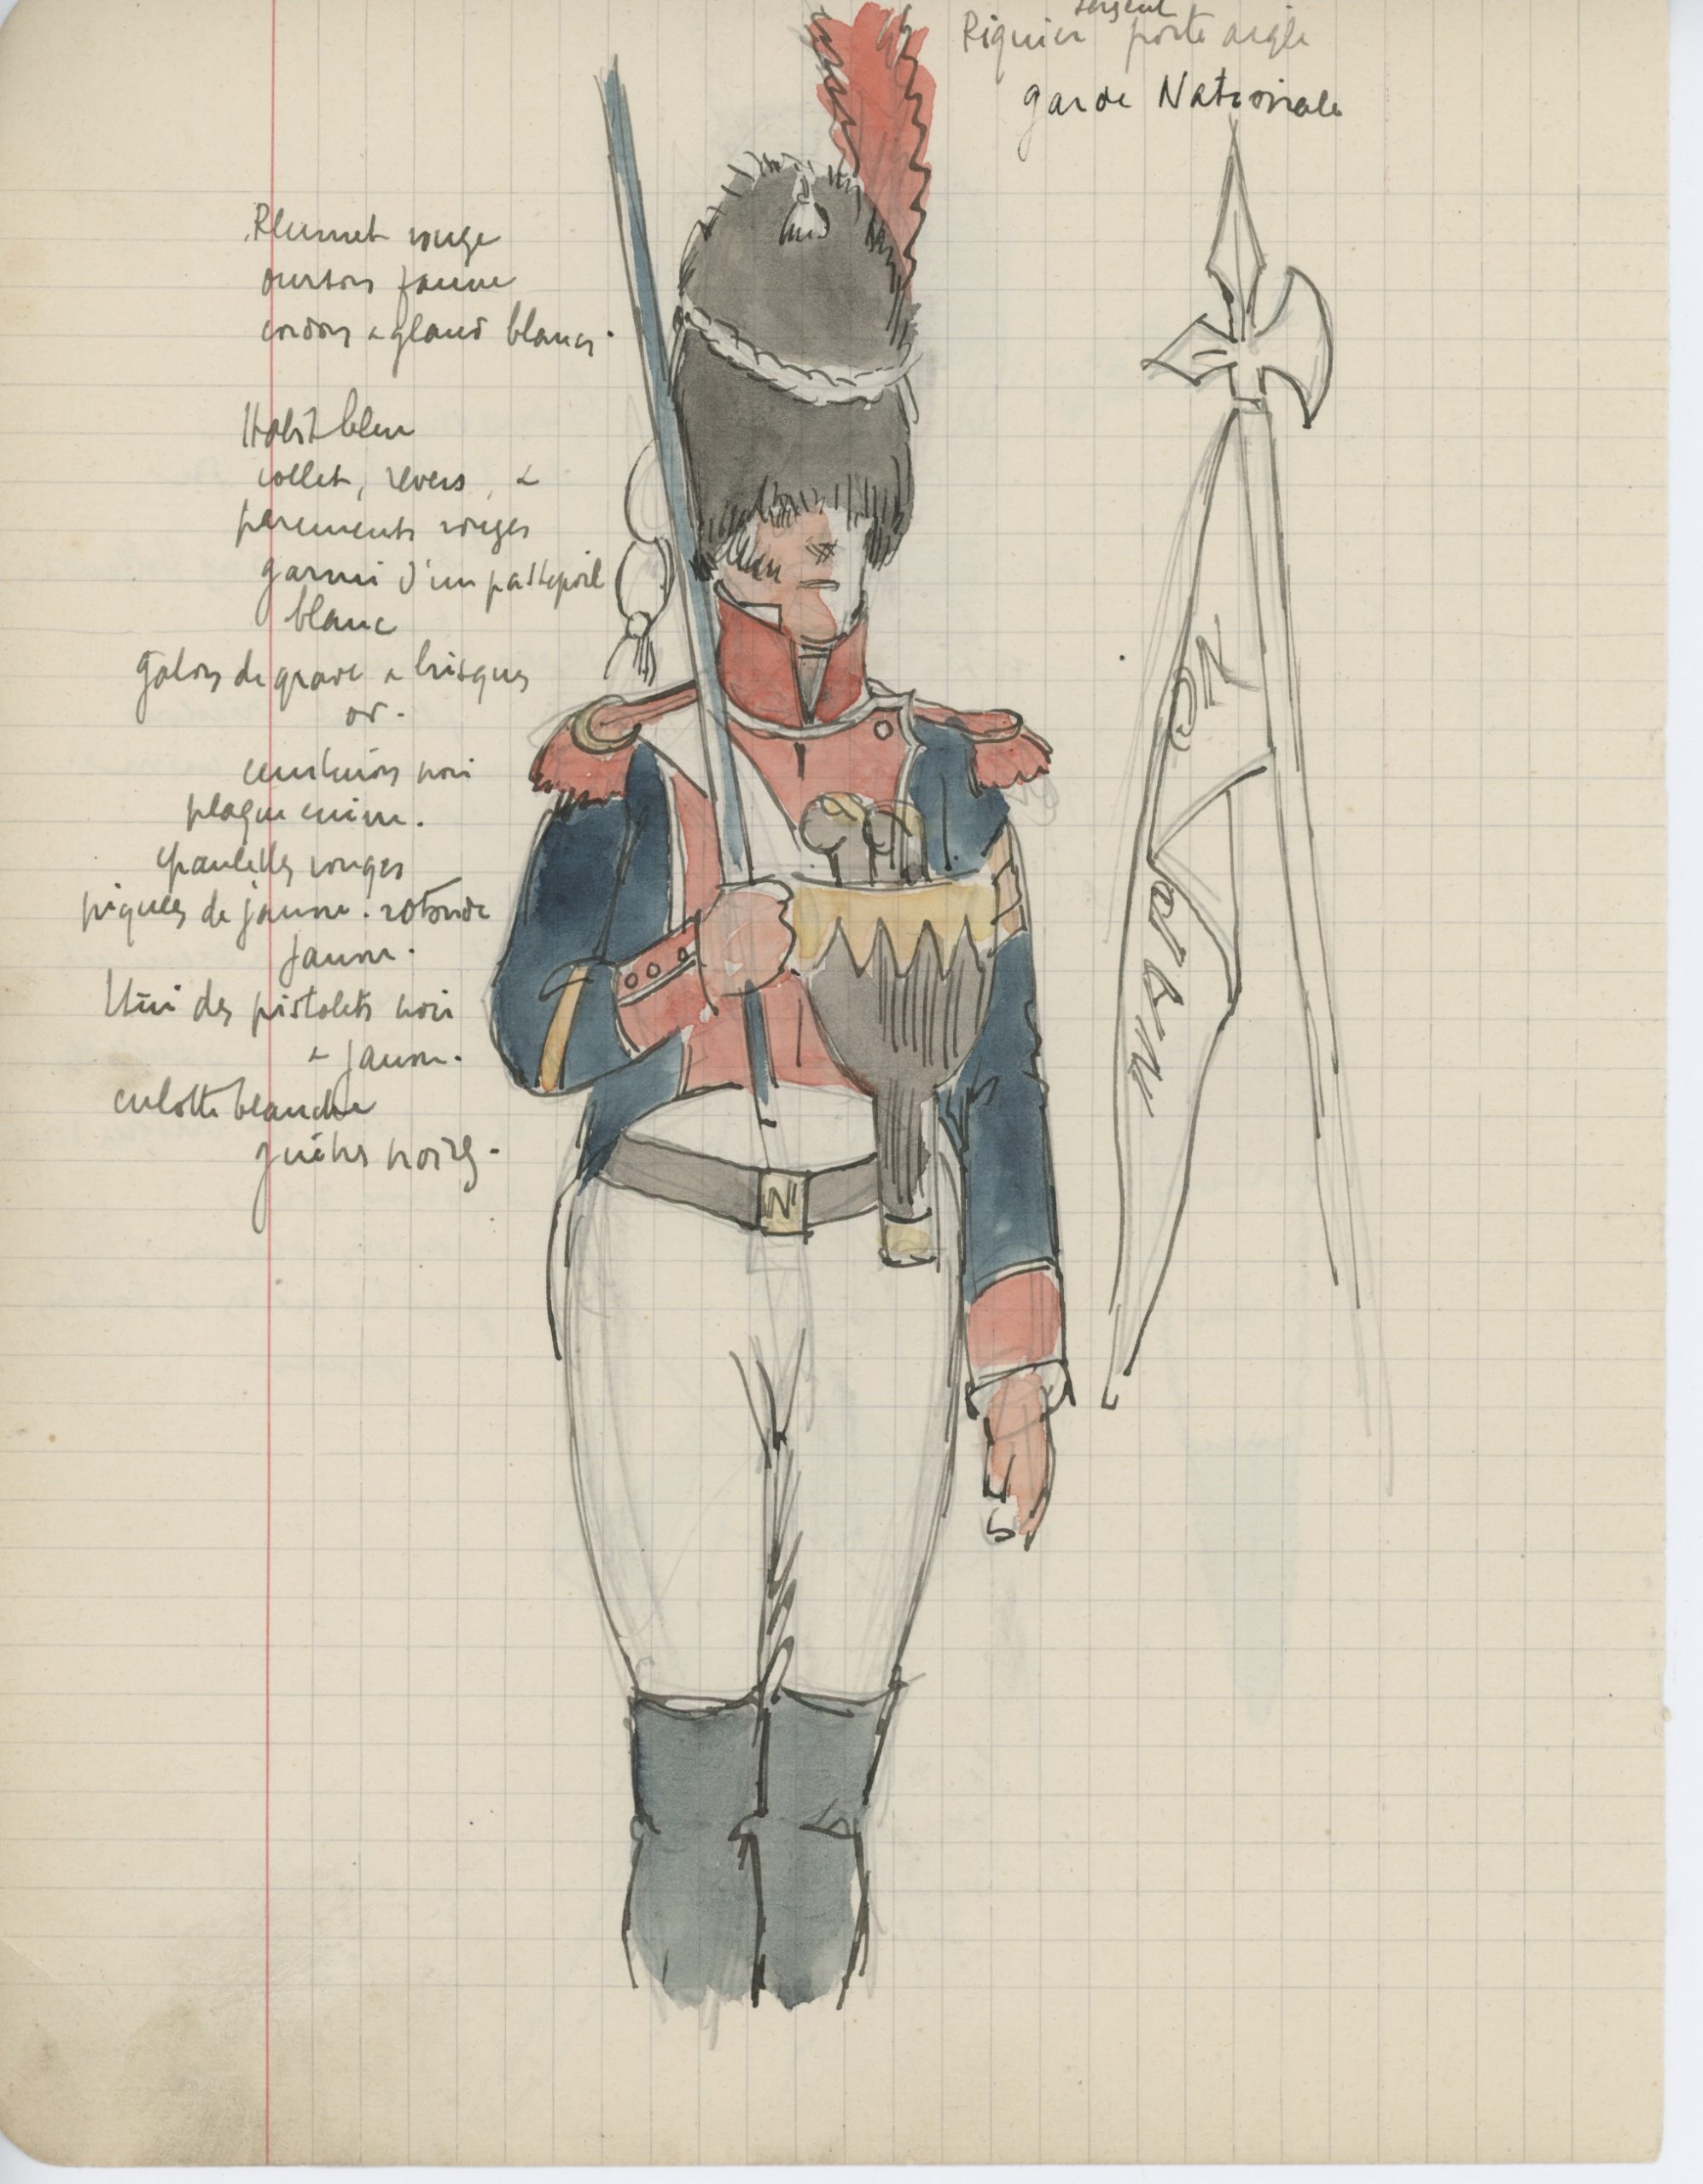 sergent
Riquier porte aigle
garde Nationale
Plumet rouge
ourson jaune
cordon & gland blancs.
Habit bleu
collet, revers, &
parements rouges
garni d'un passepoil
blanc
galons de grade & brisques
or.
ceinturon noir
plaque cuivre.
épaulettes rouges
piquées de jaune. rotonde
jaune.
Etui des pistolets noir
& jaune.
culotte blanche
guêtres noires.
N